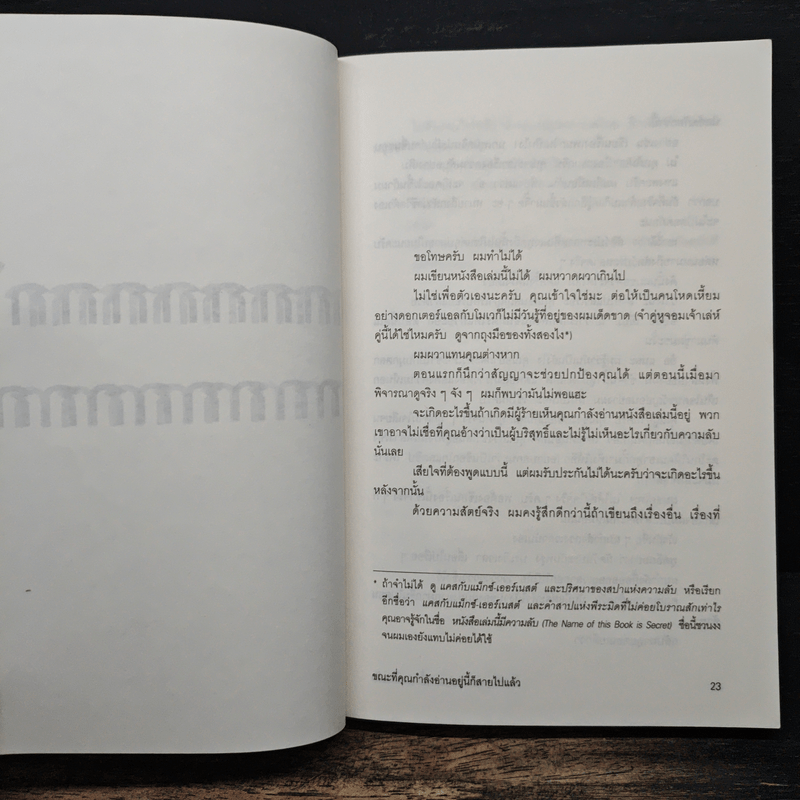 ขอโทษครับ ผมทำไม่ได้
ผมเขียนหนังสือเล่มนี้ไม่ได้ ผมหวาดผวาเกินไป
ไม่ใช่เพื่อตัวเองนะครับ คุณเข้าใจใช่มะ ต่อให้เป็นคนโหดเหี้ยม
อย่างดอกเตอร์แอลกับโมเวก็ไม่มีวันรู้ที่อยู่ของผมเด็ดขาด (จำคู่หูจอมเจ้าเล่ห์
คู่นี้ได้ใช่ไหมครับ ดูจากถุงมือของทั้งสองไง*)
ผมผวาแทนคุณต่างหาก
ตอนแรกก็นึกว่าสัญญาจะช่วยปกป้องคุณได้ แต่ตอนนี้เมื่อมา
พิจารณาดูจริง ๆ จัง ๆ ผมก็พบว่ามันไม่พอแฮะ
จะเกิดอะไรขึ้นถ้าเกิดมีผู้ร้ายเห็นคุณกำลังอ่านหนังสือเล่มนี้อยู่ พวก
เขาอาจไม่เชื่อที่คุณอ้างว่าเป็นผู้บริสุทธิ์และไม่รู้ไม่เห็นอะไรเกี่ยวกับความลับ
นั่นเลย
เสียใจที่ต้องพูดแบบนี้ แต่ผมรับประกันไม่ได้นะครับว่าจะเกิดอะไรขึ้น
หลังจากนั้น
ด้วยความสัตย์จริง ผมคงรู้สึกดีกว่านี้ถ้าเขียนถึงเรื่องอื่น เรื่องที่
* ถ้าจำไม่ได้ ดู แคสกับแม็กซ์-เออร์เนสต์ และปริศนาของสปาแห่งความลับ หรือเรียก
อีกชื่อว่า แคสกับแม็กซ์-เออร์เนสต์ และคำสาปแห่งพีระมิดที่ไม่ค่อยโบราณสักเท่าไร
คุณอาจรู้จักในชื่อ หนังสือเล่มนี้มีความลับ (The Name of this Book is Secret) ชื่อนี้ชวนงง
จนผมเองยังแทบไม่ค่อยได้ใช้
ขณะที่คุณกำลังอ่านอยู่นี้ก็สายไปแล้ว 23